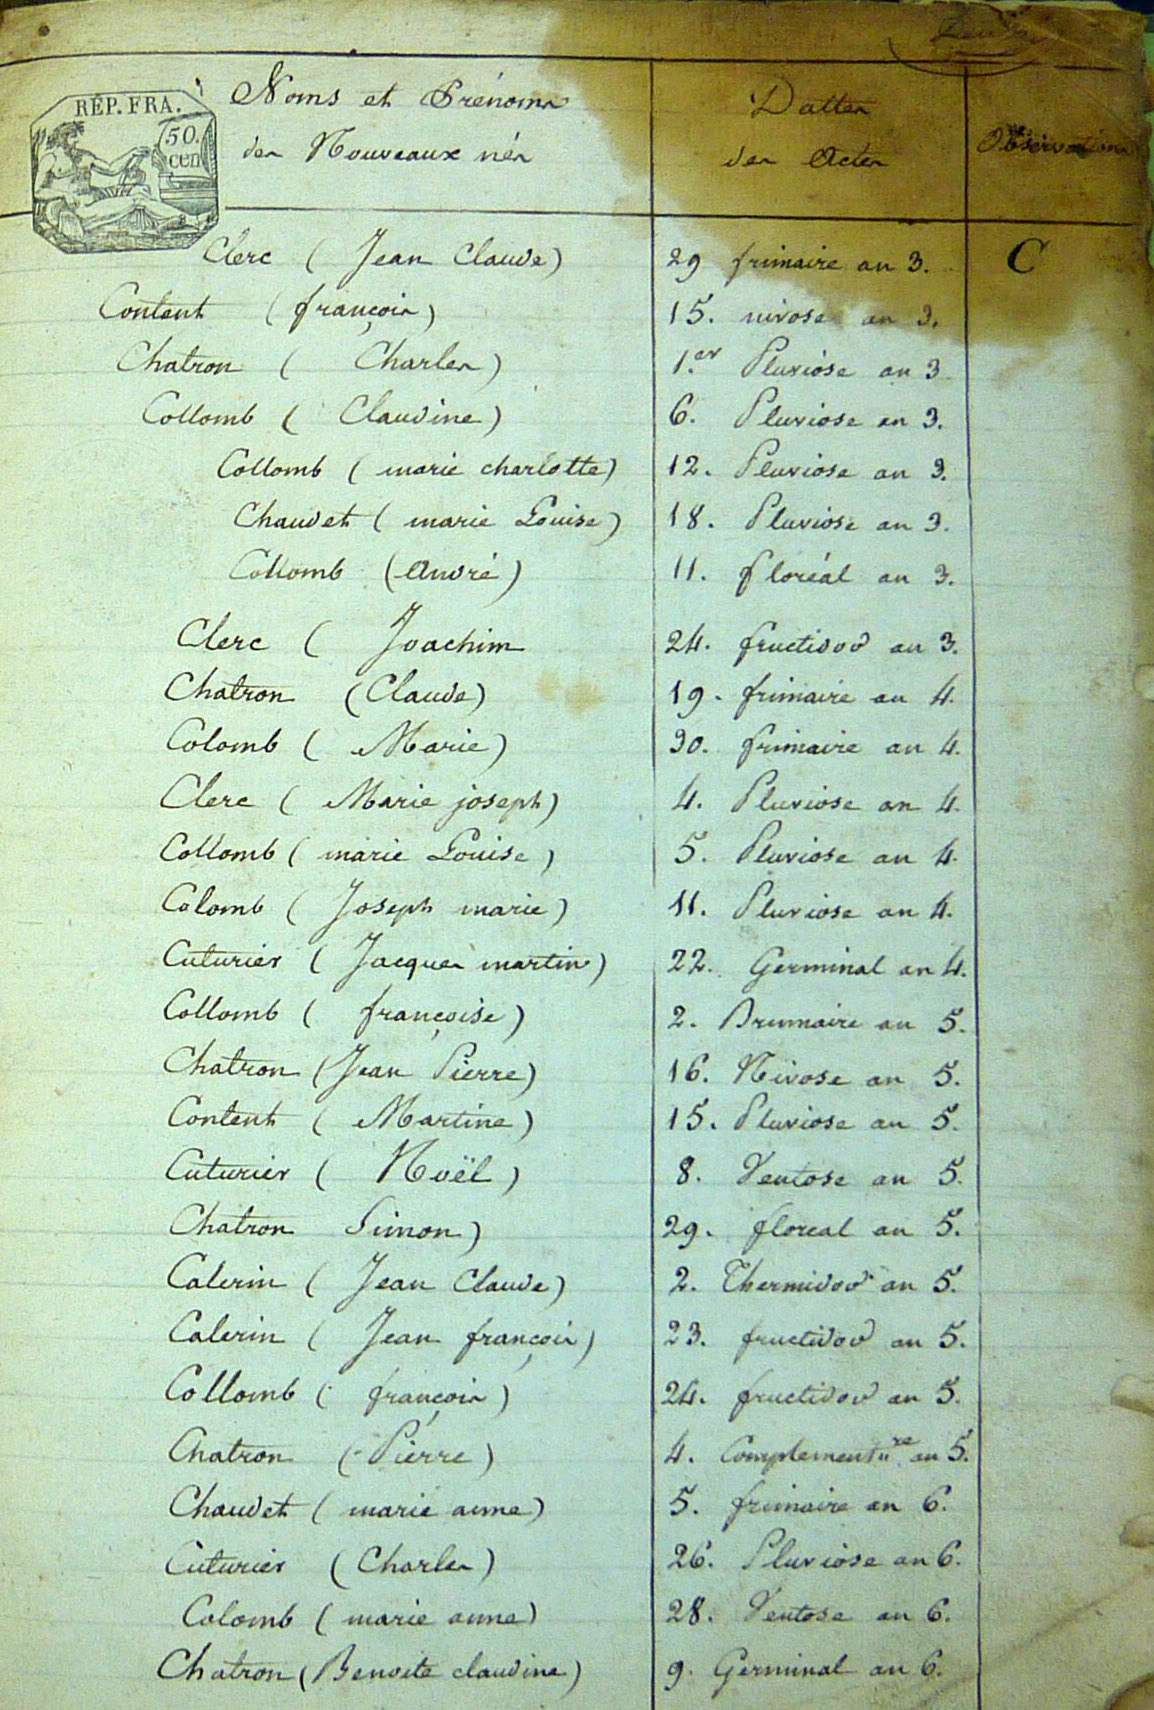 RÉP. FRA.
50.
cen
Noms et Prénoms
des Nouveaux nés
Dattes
des Actes
Observations
Clerc ( Jean Claude) 29 frimaire an 3. C
Content ( françois) 15. nivose an 3.
Chatron ( Charles) 1.er Pluviôse an 3
Collomb ( Claudine) 6. Pluviose an 3.
Collomb ( marie charlotte) 12. Pluviose an 3.
Chaudet ( marie Louise) 18. Pluviose an 3.
Collomb (André) 11. floréal an 3.
Clerc ( Joachim 24. fructidor an 3.
Chatron (Claude) 19. frimaire an 4.
Colomb ( Marie) 30. frimaire an 4.
Clerc ( Marie joseph) 4. Pluviose an 4.
Collomb ( marie Louise) 5. Pluviose an 4.
Colomb ( Joseph marie) 11. Pluviose an 4.
Cuturier ( Jacques martin) 22. Germinal an 4.
Collomb ( françoise) 2. Brumaire an 5.
Chatron (Jean Pierre) 16. Nivose an 5.
Content ( Martine) 15. Pluviose an 5.
Cuturier ( Noël) 8. Ventose an 5.
Chatron Simon) 29. floreal an 5.
Calerin ( Jean Claude) 2. Thermidor an 5.
Calerin ( Jean françois) 23. fructidor an 5.
Collomb ( françois) 24. fructidor an 5.
Chatron ( Pierre) 4. Complement.re an 5.
Chaudet ( marie anne) 5. frimaire an 6.
Cuturier ( Charles) 26. Pluviose an 6.
Colomb ( marie anne) 28. Ventose an 6.
Chatron (Benoite claudine) 9. Germinal an 6.